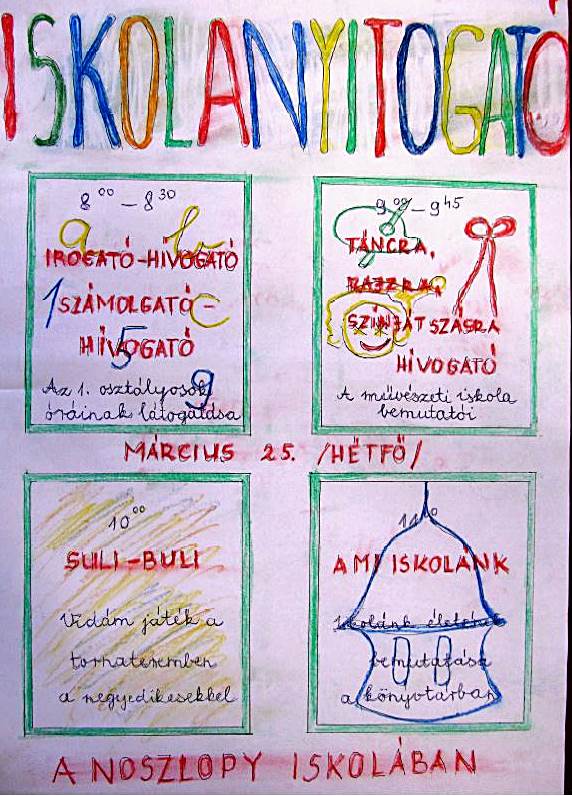 ISKOLANYITOGATÓ
8 00 – 8 30
a b
IROGATÓ-HÍVOGATÓ
1 SZÁMOLGATÓ- c
HÍVOGATÓ
5
9
Az 1. osztályosok
óráinak látogatása
9 00 – 9 45
TÁNCRA,
RAJZRA,
SZÍNJÁTSZÁSRA
HÍVOGATÓ
A művészeti iskola
bemutatói
MÁRCIUS 25. /HÉTFŐ/
10 00
SULI-BULI
Vidám játék a
tornateremben
a negyedikesekkel
A MI ISKOLÁNK
Iskolánk életének
bemutatása
a könyvtárban
A NOSZLOPY ISKOLÁBAN